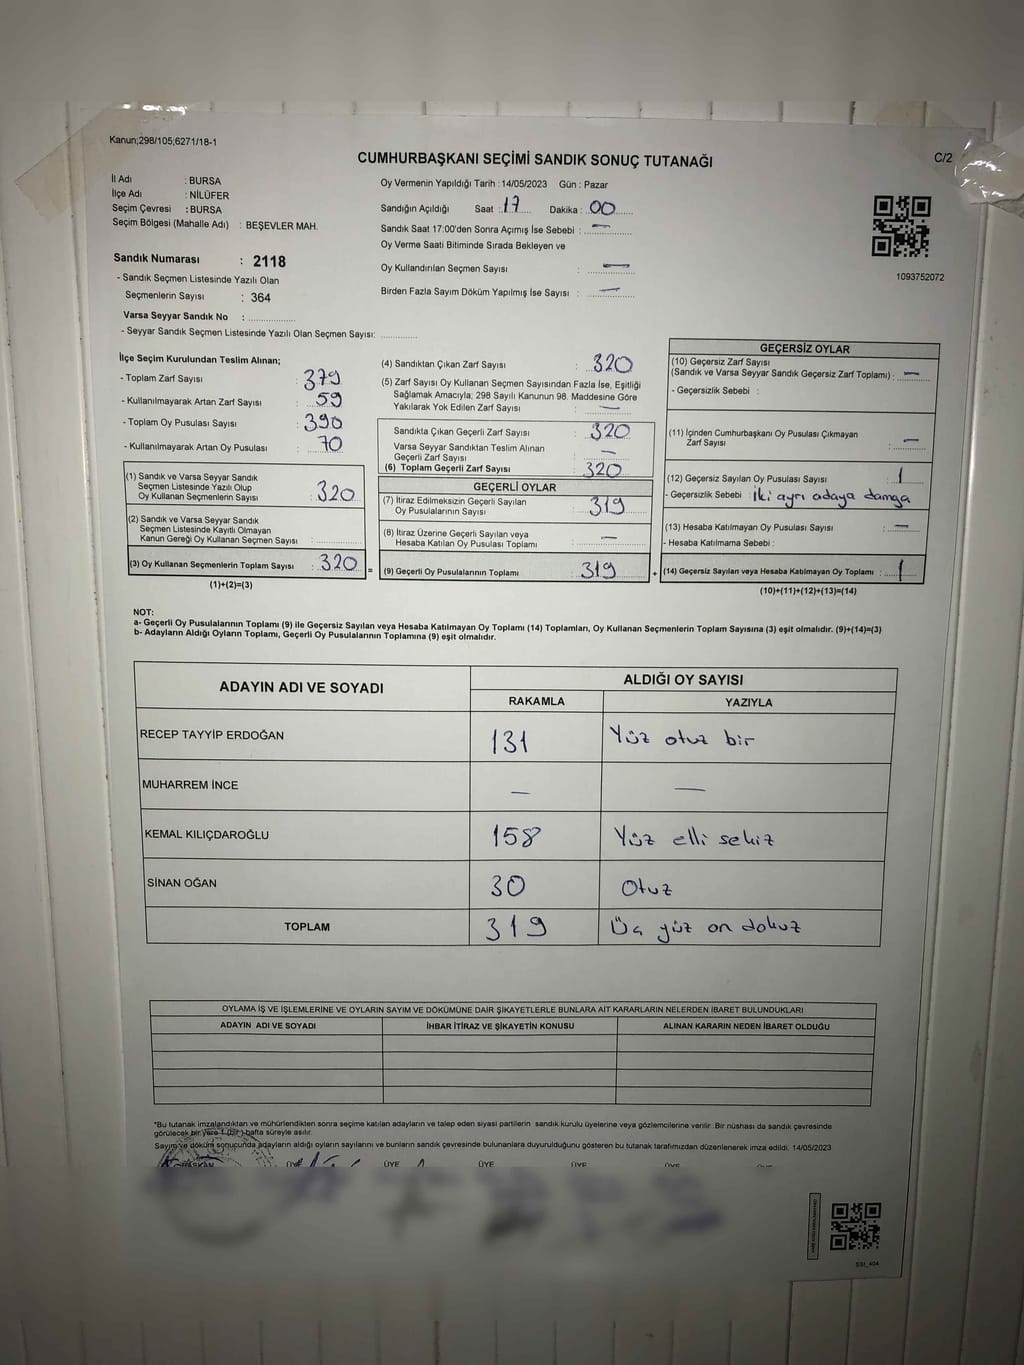 Kanun;298/105;6271/18-1
CUMHURBAŞKANI SEÇİMİ SANDIK SONUÇ TUTANAĞI
C/2
İl Adı : BURSA
İlçe Adı : NİLÜFER
Seçim Çevresi : BURSA
Seçim Bölgesi (Mahalle Adı) : BEŞEVLER MAH.
Sandık Numarası : 2118
- Sandık Seçmen Listesinde Yazılı Olan
Seçmenlerin Sayısı : 364
Varsa Seyyar Sandık No : ..............
- Seyyar Sandık Seçmen Listesinde Yazılı Olan Seçmen Sayısı: ..............
Oy Vermenin Yapıldığı Tarih : 14/05/2023 Gün : Pazar
Sandığın Açıldığı Saat : 17 Dakika : 00
Sandık Saat 17:00'den Sonra Açımış İse Sebebi : —
Oy Verme Saati Bitiminde Sırada Bekleyen ve
Oy Kullandırılan Seçmen Sayısı : —
Birden Fazla Sayım Döküm Yapılmış İse Sayısı : —
1093752072
İlçe Seçim Kurulundan Teslim Alınan;
- Toplam Zarf Sayısı : 379
- Kullanılmayarak Artan Zarf Sayısı : 59
- Toplam Oy Pusulası Sayısı : 390
- Kullanılmayarak Artan Oy Pusulası : 70
(1) Sandık ve Varsa Seyyar Sandık
Seçmen Listesinde Yazılı Olup
Oy Kullanan Seçmenlerin Sayısı : 320
(2) Sandık ve Varsa Seyyar Sandık
Seçmen Listesinde Kayıtlı Olmayan
Kanun Gereği Oy Kullanan Seçmen Sayısı : ..............
(3) Oy Kullanan Seçmenlerin Toplam Sayısı : 320
(1)+(2)=(3)
=
(4) Sandıktan Çıkan Zarf Sayısı : 320
(5) Zarf Sayısı Oy Kullanan Seçmen Sayısından Fazla İse, Eşitliği
Sağlamak Amacıyla; 298 Sayılı Kanunun 98. Maddesine Göre
Yakılarak Yok Edilen Zarf Sayısı : —
Sandıkta Çıkan Geçerli Zarf Sayısı : 320
Varsa Seyyar Sandıktan Teslim Alınan
Geçerli Zarf Sayısı : —
(6) Toplam Geçerli Zarf Sayısı : 320
GEÇERLİ OYLAR
(7) İtiraz Edilmeksizin Geçerli Sayılan
Oy Pusulalarının Sayısı : 319
(8) İtiraz Üzerine Geçerli Sayılan veya
Hesaba Katılan Oy Pusulası Toplamı : —
(9) Geçerli Oy Pusulalarının Toplamı : 319
+
GEÇERSİZ OYLAR
(10) Geçersiz Zarf Sayısı
(Sandık ve Varsa Seyyar Sandık Geçersiz Zarf Toplamı) : —
- Geçersizlik Sebebi :
(11) İçinden Cumhurbaşkanı Oy Pusulası Çıkmayan
Zarf Sayısı : —
(12) Geçersiz Sayılan Oy Pusulası Sayısı : 1
- Geçersizlik Sebebi : İki ayrı adaya damga
(13) Hesaba Katılmayan Oy Pusulası Sayısı : —
- Hesaba Katılmama Sebebi :
(14) Geçersiz Sayılan veya Hesaba Katılmayan Oy Toplamı : 1
(10)+(11)+(12)+(13)=(14)
NOT:
a- Geçerli Oy Pusulalarının Toplamı (9) ile Geçersiz Sayılan veya Hesaba Katılmayan Oy Toplamı (14) Toplamları, Oy Kullanan Seçmenlerin Toplam Sayısına (3) eşit olmalıdır. (9)+(14)=(3)
b- Adayların Aldığı Oyların Toplamı, Geçerli Oy Pusulalarının Toplamına (9) eşit olmalıdır.
ADAYIN ADI VE SOYADI
ALDIĞI OY SAYISI
RAKAMLA YAZIYLA
RECEP TAYYİP ERDOĞAN 131 Yüz otuz bir
MUHARREM İNCE — —
KEMAL KILIÇDAROĞLU 158 Yüz elli sekiz
SİNAN OĞAN 30 Otuz
TOPLAM 319 Üç yüz on dokuz
OYLAMA İŞ VE İŞLEMLERİNE VE OYLARIN SAYIM VE DÖKÜMÜNE DAİR ŞİKAYETLERLE BUNLARA AİT KARARLARIN NELERDEN İBARET BULUNDUKLARI
ADAYIN ADI VE SOYADI İHBAR İTİRAZ VE ŞİKAYETİN KONUSU ALINAN KARARIN NEDEN İBARET OLDUĞU
*Bu tutanak imzalandıktan ve mühürlendikten sonra seçime katılan adayların ve talep eden siyasi partilerin sandık kurulu üyelerine veya gözlemcilerine verilir. Bir nüshası da sandık çevresinde
görülecek bir yere 1 (bir) hafta süreyle asılır.
Sayım ve döküm sonucunda adayların aldığı oyların sayılarını ve bunların sandık çevresinde bulunanlara duyurulduğunu gösteren bu tutanak tarafımızdan düzenlenerek imza edildi. 14/05/2023
BAŞKAN ÜYE ÜYE ÜYE ÜYE ÜYE
SSI_404